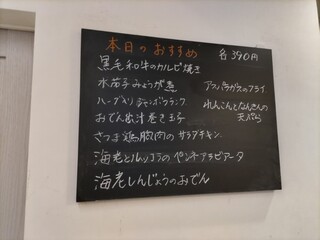 本日のおすすめ 各390円
黒毛和牛のカルビ焼き
水茄子みょうが煮
アスパラガスのフライ
ハーブ入りジャンボフランク
れんこんとなんきんの
天ぷら
おでん出汁巻き玉子
さつま鶏胸肉のサラダチキン
海老とルッコラのペンネアラビアータ
海老しんじょうのおでん